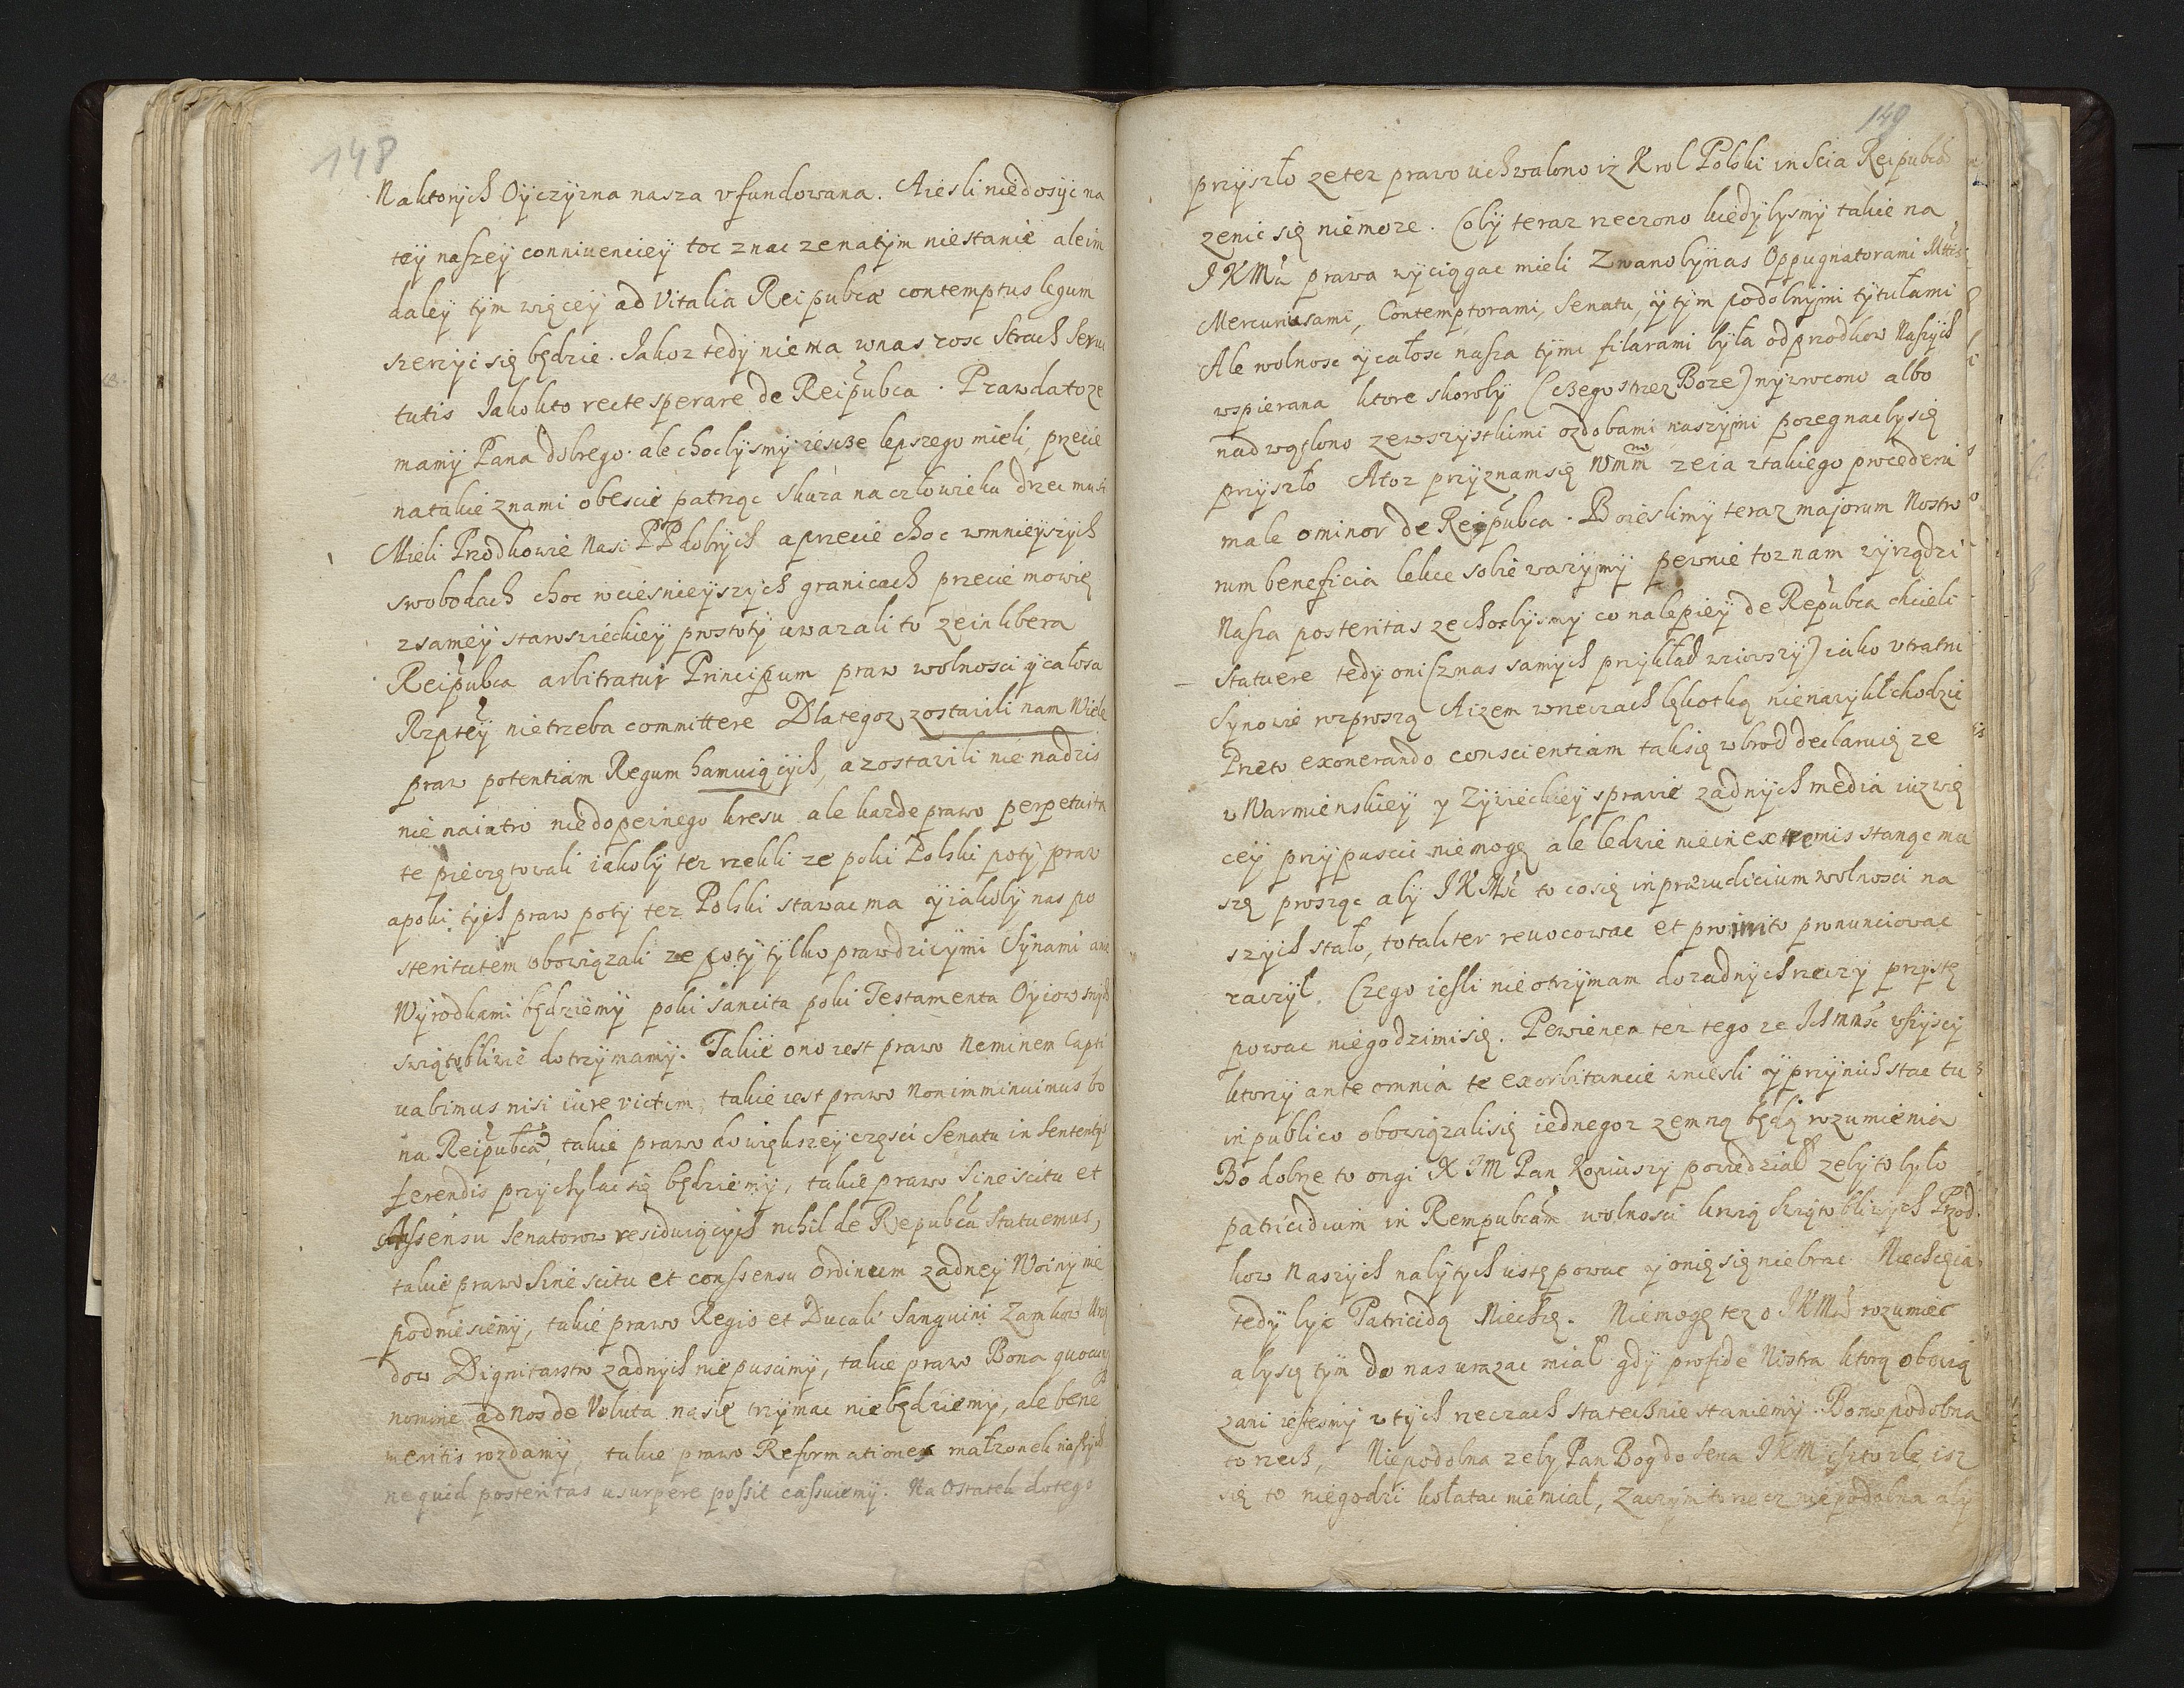 148
Naktorych Oyczyzna nasza vfundowana. Aiesli niedosyc na
tey naszey conniuenciey toc znac zenatym niestanie aleim
daley tym więcey ad Vitalia Reipubcæ contemptus legum
szerzyc się będzie. Jakoz tedy niema wnas rosc Strach Serui
tutis Jakokto recte sperare de Reipubca. Prawdatoze
mamy Pana dobrego ale chocbysmy iescze lepszego mieli, przecie
natakie znami obescie patrząc skura na człowieku drzec musi
Mieli Przodkowie Nasi PP dobrych aprzecie choc wmnieyszych
swobodach choc wciesnieyszych granicach przecie mowię
zsamey staroszieckiey prostoty uwazali to zein libera
Reipubca arbitratui Principum praw wolnosci ycałosci
Rzptey nietrzeba committere Dlategoz zostawili nam Wiele
praw potentiam Regum hamuiących, azostawili nie nadzis
nie naiutro niedopewnego kresu ale kazde prawo perpetuita
te pieczętowali iakoby tez rzekli ze poki Polski poty praw
apoki tych praw poty tez Polski stawac ma yiakoby nas po
steritatem obowiązali ze poty tylko prawdziwymi Synami ane
Wyrodkami będziemy poki sancita poki Testamenta Oycow snych
swiątobliwie dotrzymamy. Takie ono iest prawo Neminem Capti
uabimus nisi iure victum, takie iest prawo Nonimminuimus bo
na Reipubcæ, takie prawo dowiększey części Senatu in Sententys
ferendis przychylac się będziemy, takie prawo Sine scitu et
Assensu Senatorow residuiących nihil de Repubca Statuemus,
takie prawo Sine scitu et conssensu Ordinum zadney Woiny nie
podniesiemy, takie prawo Regio et Ducali Sanguini Zamkow Urzę
dow Dignitarstw zadnych niepuscimy, takie prawo Bona quocunq
nomine ad Nos deVoluta nasię trzymac niebędziemy, ale bene
meritis rozdamy, takie prawo Reformationes małzonek naszych
ne quid posteritas usurpere possit cassuiemy. Na Ostatek dotego
149
przyszło zetez prawo uchwalono iz Krol Polski inscia Reipubcæ
zenic się niemoze. Coby teraz rzeczono kiedybysmy takie na
JKMci prawa wyciągac mieli Zwanobynas Oppugnatorami Mttis
Mercuriusami, Contemptorami, Senatu, y tym podobnymi tytułami
Ale wolnosc ycałosc nasza tymi filarami była odprzodkow Naszych
wspierana ktore skoroby (czego strzez Boze) wyzwcono albo
nadwątlono zewszystkimi ozdobami naszymi pozegnacbysię
przyszło Atoz przyznamsię Wmm zeia ztakiego procederu
male ominor de Reipubca. Boieslimy teraz majorum Nostro
rum beneficia lekce sobie wazymy pewnie toznam wyrządzi
Nasza posteritas zechocbysmy co nalepiey de Repubca chcieli
statuere tedy oni (znas samych przykład wziowszy) iako vtratni
Synowie rozproszą Aizem wrzeczach bękotką nienawykł chodzic
Przeto exonerando conscientiam taksię wbrod declaruię ze
vWarmienskiey y Zywieckiey sprawie zadnych media iuzwię
cey przypuscic niemogę ale ledwie niein extremis stanąc mu
szę prosząc aby JKMsc to cosię inpraeiudicium wolnosci na
szych stało, totaliter reuocowac et pro irrito pronunciowac
raczył. Czego iesli nieotrzymam dozadnych rzeczy przystę
powac niegodzimisię. Pewienem tez tego ze Ichmmsc wszyscy
ktorzy ante omnia te exorbitancie wniesli yprzynich stac tu
inpublico obowiązalisię iednegoz zemną będą rozumienia
Bo dobrze to ongi X JM Pan Koniuszy powiedział zebyto było
patricidium in Rempubcam wolnosci krwią swiątobliwych Przod
kow Naszych nabytych ustępowac yonię się niebrac Niechcęia
tedy byc Patricidą Niechcę. Niemogę tez o JKMci rozumiec
abysię tym do nas urazac miał gdy profide Nostra ktorą obowią
zani iestesmy wtych rzeczach statecznie staniemy. Boniepodobna
to rzecz, Niepodobna zeby Pan Bog do serca JKMci iz to zle isz
się to niegodzi kołatac niemiał, Zaczym to rzecz niepodobna aby